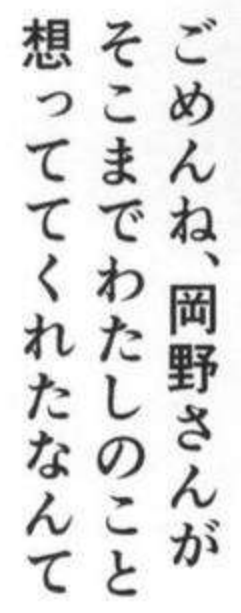 ごめんね、岡野さんが
そこまでわたしのこと
想っててくれたなんて